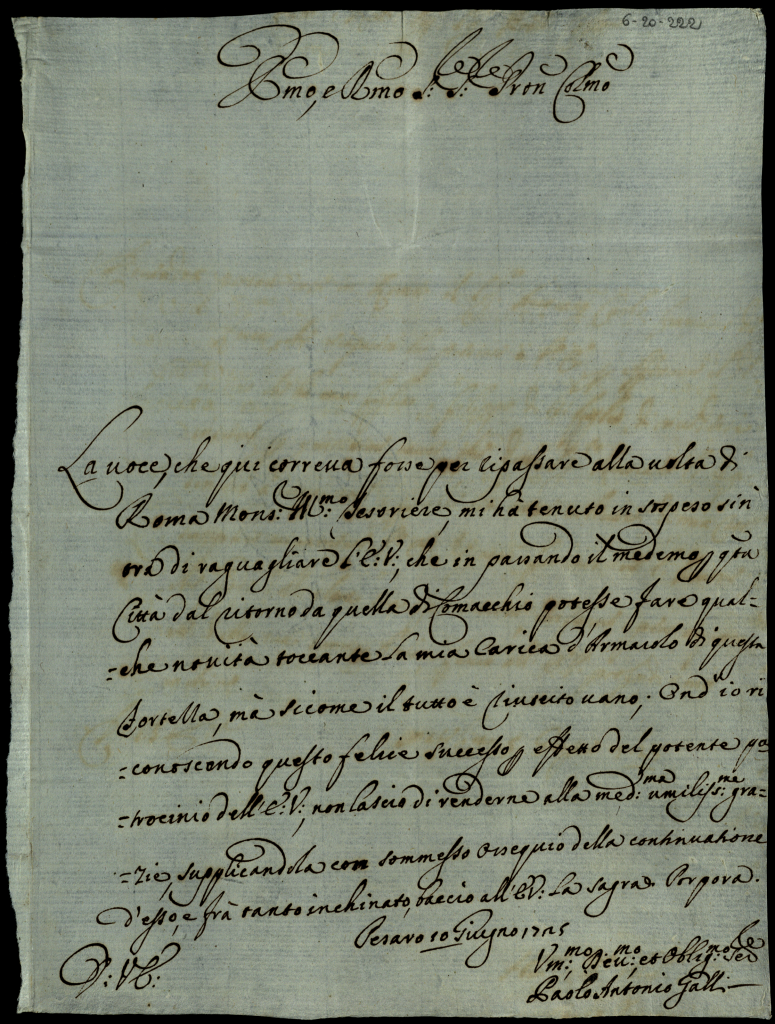 6-20-222
Emo, e Rmo Sr: Sr: Pron Colmo
La voce, che qui correva forse per ripassare alla volta di
Roma Mons:r Ill:mo Tesoriere, mi hà tenuto in sospeso sin
ora di raguagliare l'E:V:, che in passando il medemo p qta
Città dal ritorno da quella di Comacchio potesse fare qual=
=che novità toccante la mia Carica d'Armarolo di questa
Fortezza, mà sicome il tutto è riuscito vano; Ond'io ri
=conoscendo questo felice successo p effetto del potente pa
=trocinio dell'E:V:, non lascio di renderne alla med:ma umiliss:me gra=
=zie, supplicandola con sommesso ossequio della continuatione
d'esso, e frà tanto inchinato, baccio all'E:V: la sagra Porpora.
Pesaro 10 Giugno 1725
D: V E:
Vm:mo Dev:mo et Oblig:mo Ser:re
Paolo Antonio Galli